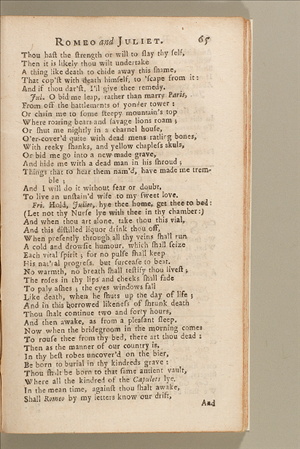 ROMEO and JULIET. 65
Thou haſt the ſtrength or will to ſlay thy ſelf,
Then it is likely thou wilt undertake
A thing like death to chide away this ſhame,
That cop'ſt with death himſelf, to 'ſcape from it:
And if thou dar'ſt, I'll give thee remedy.
Jul. O bid me leap, rather than marry Paris,
From off the battlements of yonder tower:
Or chain me to ſome ſteepy mountain's top
Where roaring bears and ſavage lions roam;
Or ſhut me nightly in a charnel houſe,
O'er-cover'd quite with dead mens ratling bones,
With reeky ſhanks, and yellow chapleſs skuls,
Or bid me go into a new-made grave,
And hide me with a dead man in his ſhroud;
Things that to hear them nam'd, have made me trem-
ble;
And I will do it without fear or doubt,
To live an unſtain'd wife to my ſweet love.
Fri. Hold, Juliet, hye thee home, get thee to bed:
(Let not thy Nurſe lye with thee in thy chamber:)
And when thou art alone, take thou this vial,
And this diſtilled liquor drink thou off,
When preſently through all thy veins ſhall run
A cold and drowſie humour, which ſhall ſeize
Each vital ſpirit; for no pulſe ſhall keep
His nat'ral progreſs, but ſurceaſe to beat.
No warmth, no breath ſhall teſtify thou liveſt;
The roſes in thy lips and cheeks ſhall fade
To paly aſhes; the eyes windows fall
Like death, when he ſhuts up the day of life;
And in this borrowed likeneſs of ſhrunk death
Thou ſhalt continue two and forty hours,
And then awake, as from a pleaſant ſleep,
Now when the bridegroom in the morning comes
To rouſe thee from thy bed, there art thou dead:
Then as the manner of our country is,
In thy beſt robes uncover'd on the bier,
Be born to burial in thy kindreds grave:
Thou ſhalt be born to that ſame antient vault,
Where all the kindred of the Capulets lye.
In the mean time, againſt thou ſhalt awake,
Shall Romeo by my letters know our drift,
And